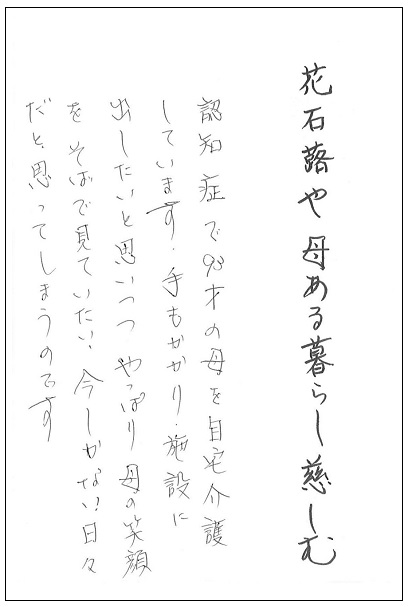 花石蕗や母ある暮らし慈しむ
認知症で93才の母を自宅介護
しています.手もかかり.施設に
出したいと思いつつ やっぱり母の笑顔
を そばで見ていたい.今しかない!日々
だと思ってしまうのです